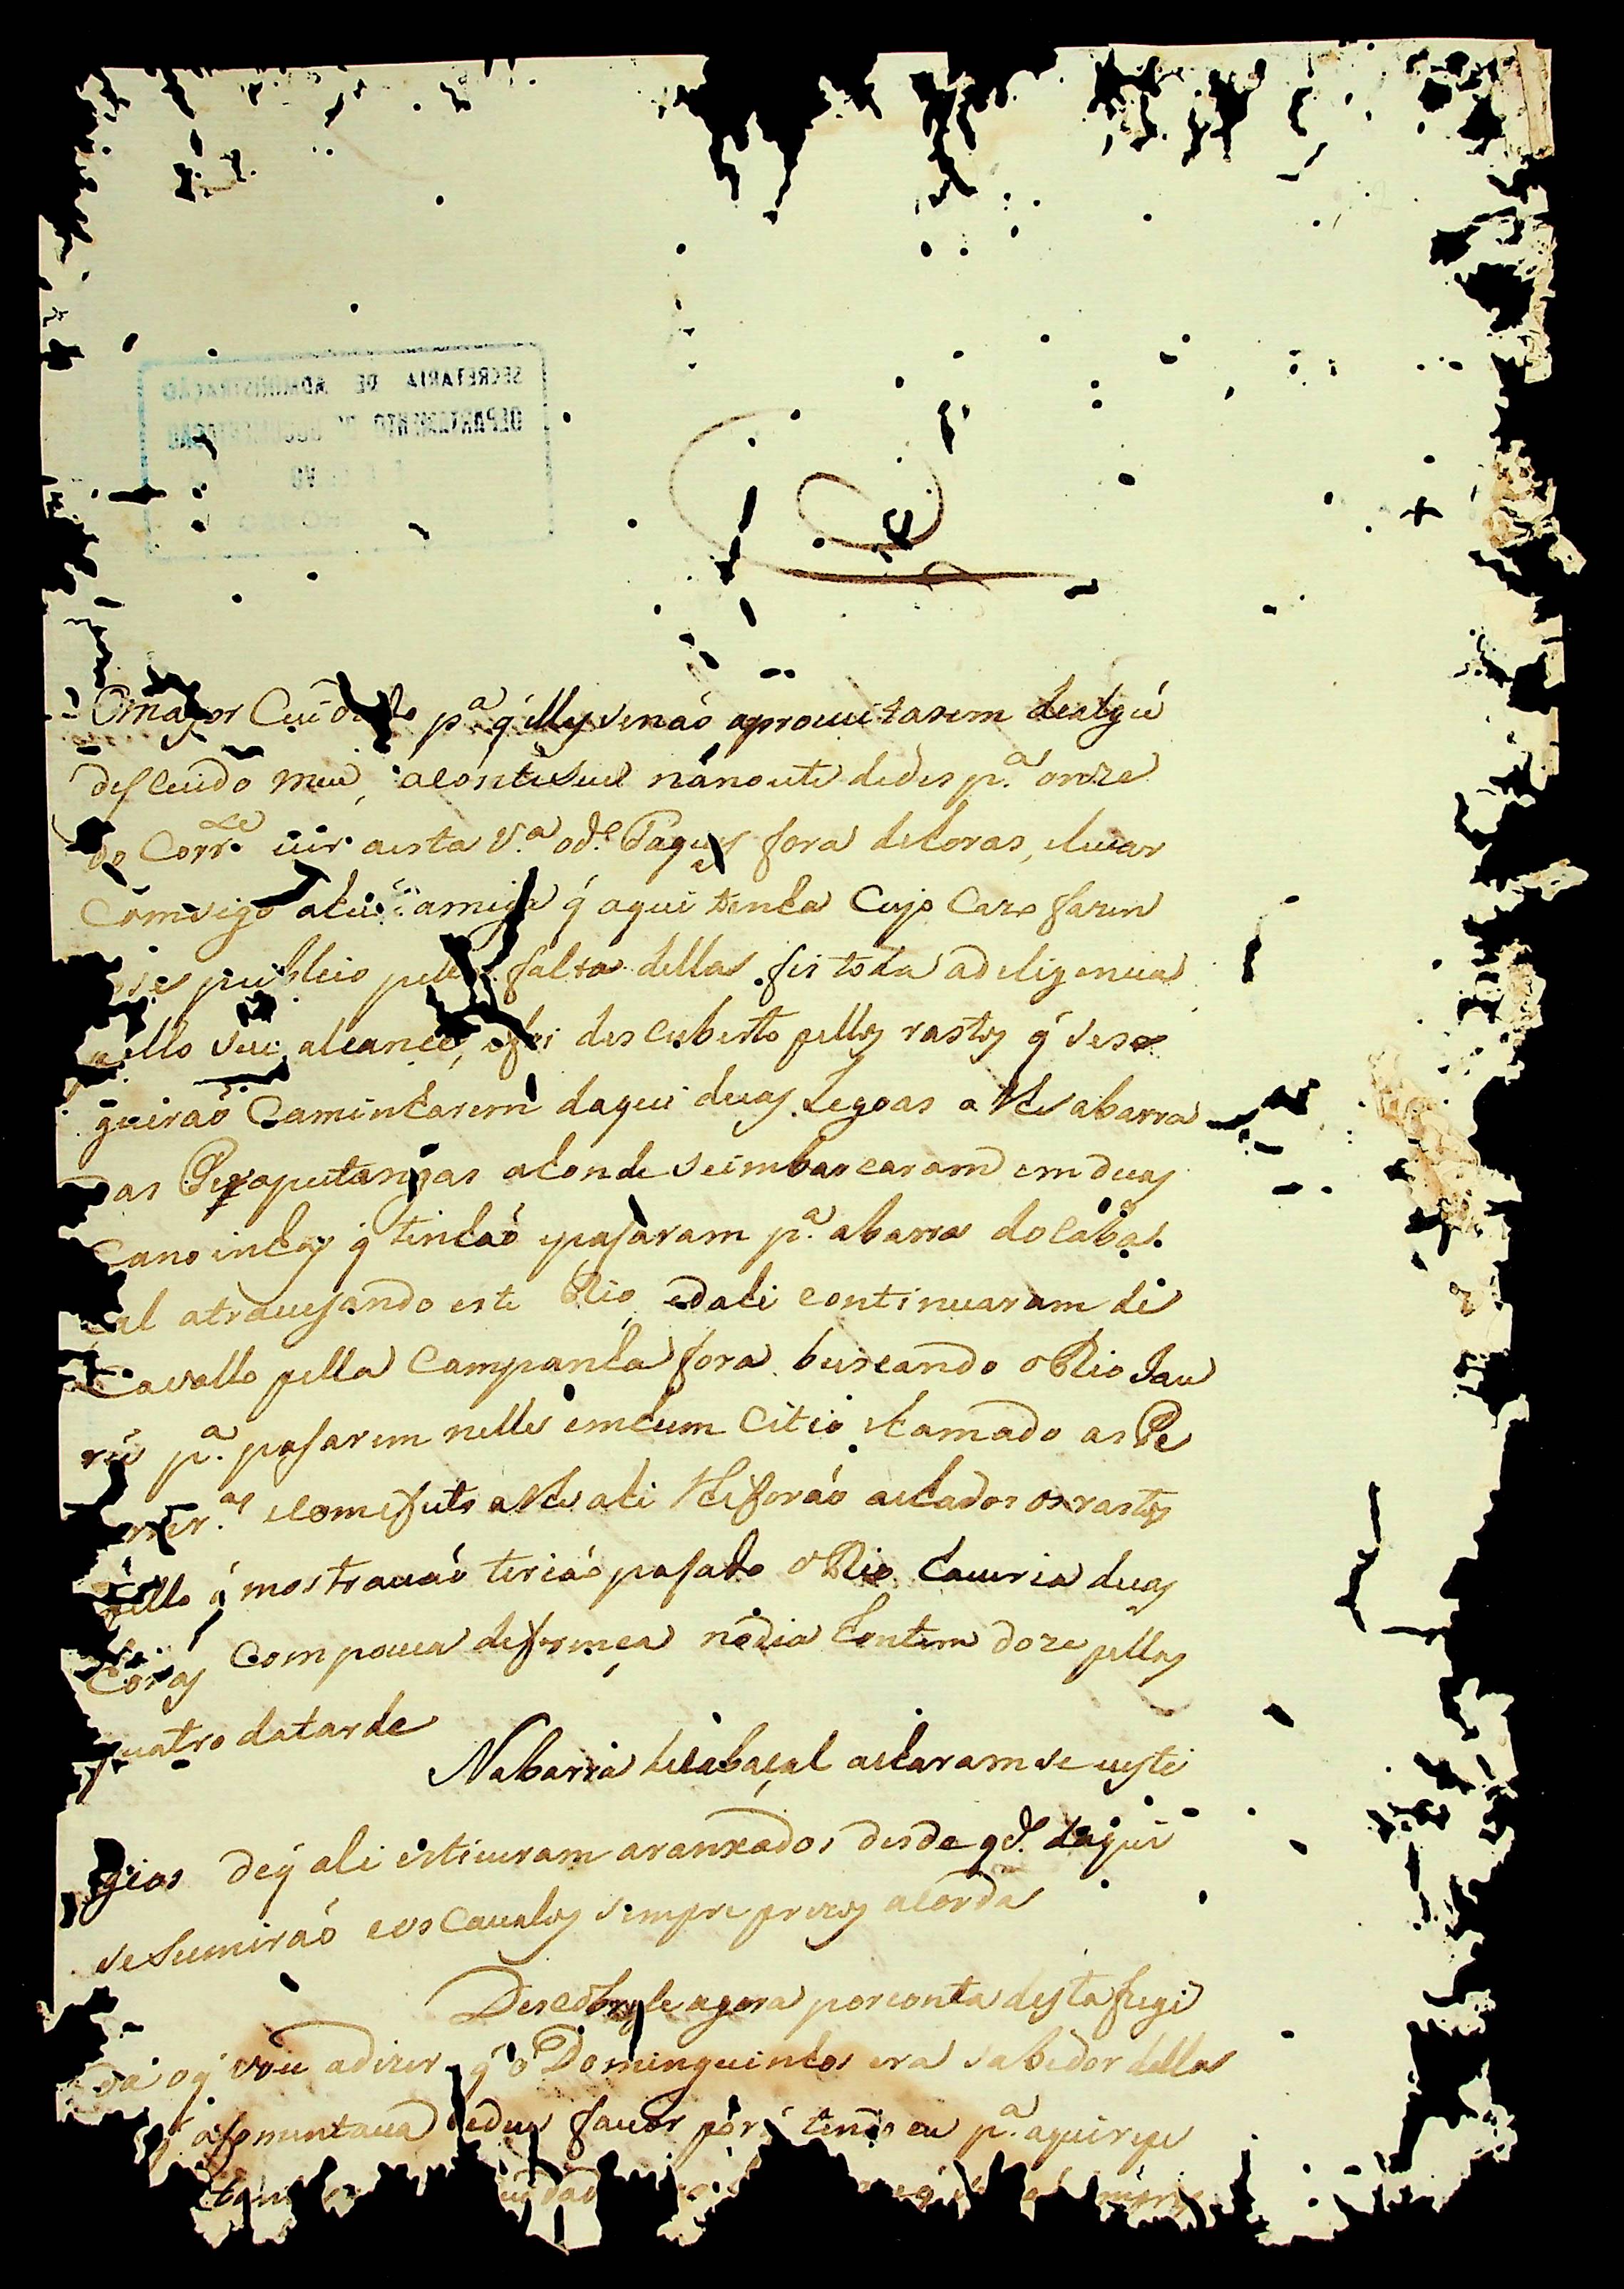 SECRETARIA DE ADMINISTRAÇÃO
DEPARTAMENTO DE
O mayor Cuidado p.ª q̃ elles senaó aproueitasem dealgũ
descuido meu, aconteseu nanoute dedes p.ª onze
do Corr.e uir aesta V.ª od.e fora dehoras, eleuar
Comsigo amiga q̃ aqui tenha Cujo Cazo fazen
publico pella falta dellas fis toda adeligencia
pello seu alcance, efoi descuberto pellos rastos q̃ sese
guiraó Caminharem daqui duas Legoas athe abarra
das Peraputangas ahonde seimbarcaram em duas
Canoinhas q̃ tinhaó epasaram p.ª abarra doCaba
cal atrauesando este Rio, edahi continuaram de
Cavallo pella Campanha fora buscando oRio Jau
rú p.ª pasarem nelle emhum Citio chamado as Pe
ecomefeito athe ahi lhe foráo achados os rastos
pello q̃ mostrauaó teriáo pasado oRio haueria duas
horas Compouca deferença nodia hontem doze pellas
quatro datarde
Nabarra deCabaçal acharamse uesti
gios deq̃ ali estiueram aranxados desde q.do daqui
seSumiráo eosCaualos sempre prezos acorda
Descobrese agora porconta desta fugi
da oq̃ vou adizer q̃ o Dominguinhos era sabedor dellas
afomentaua fauor tendo eu p.ª aqui